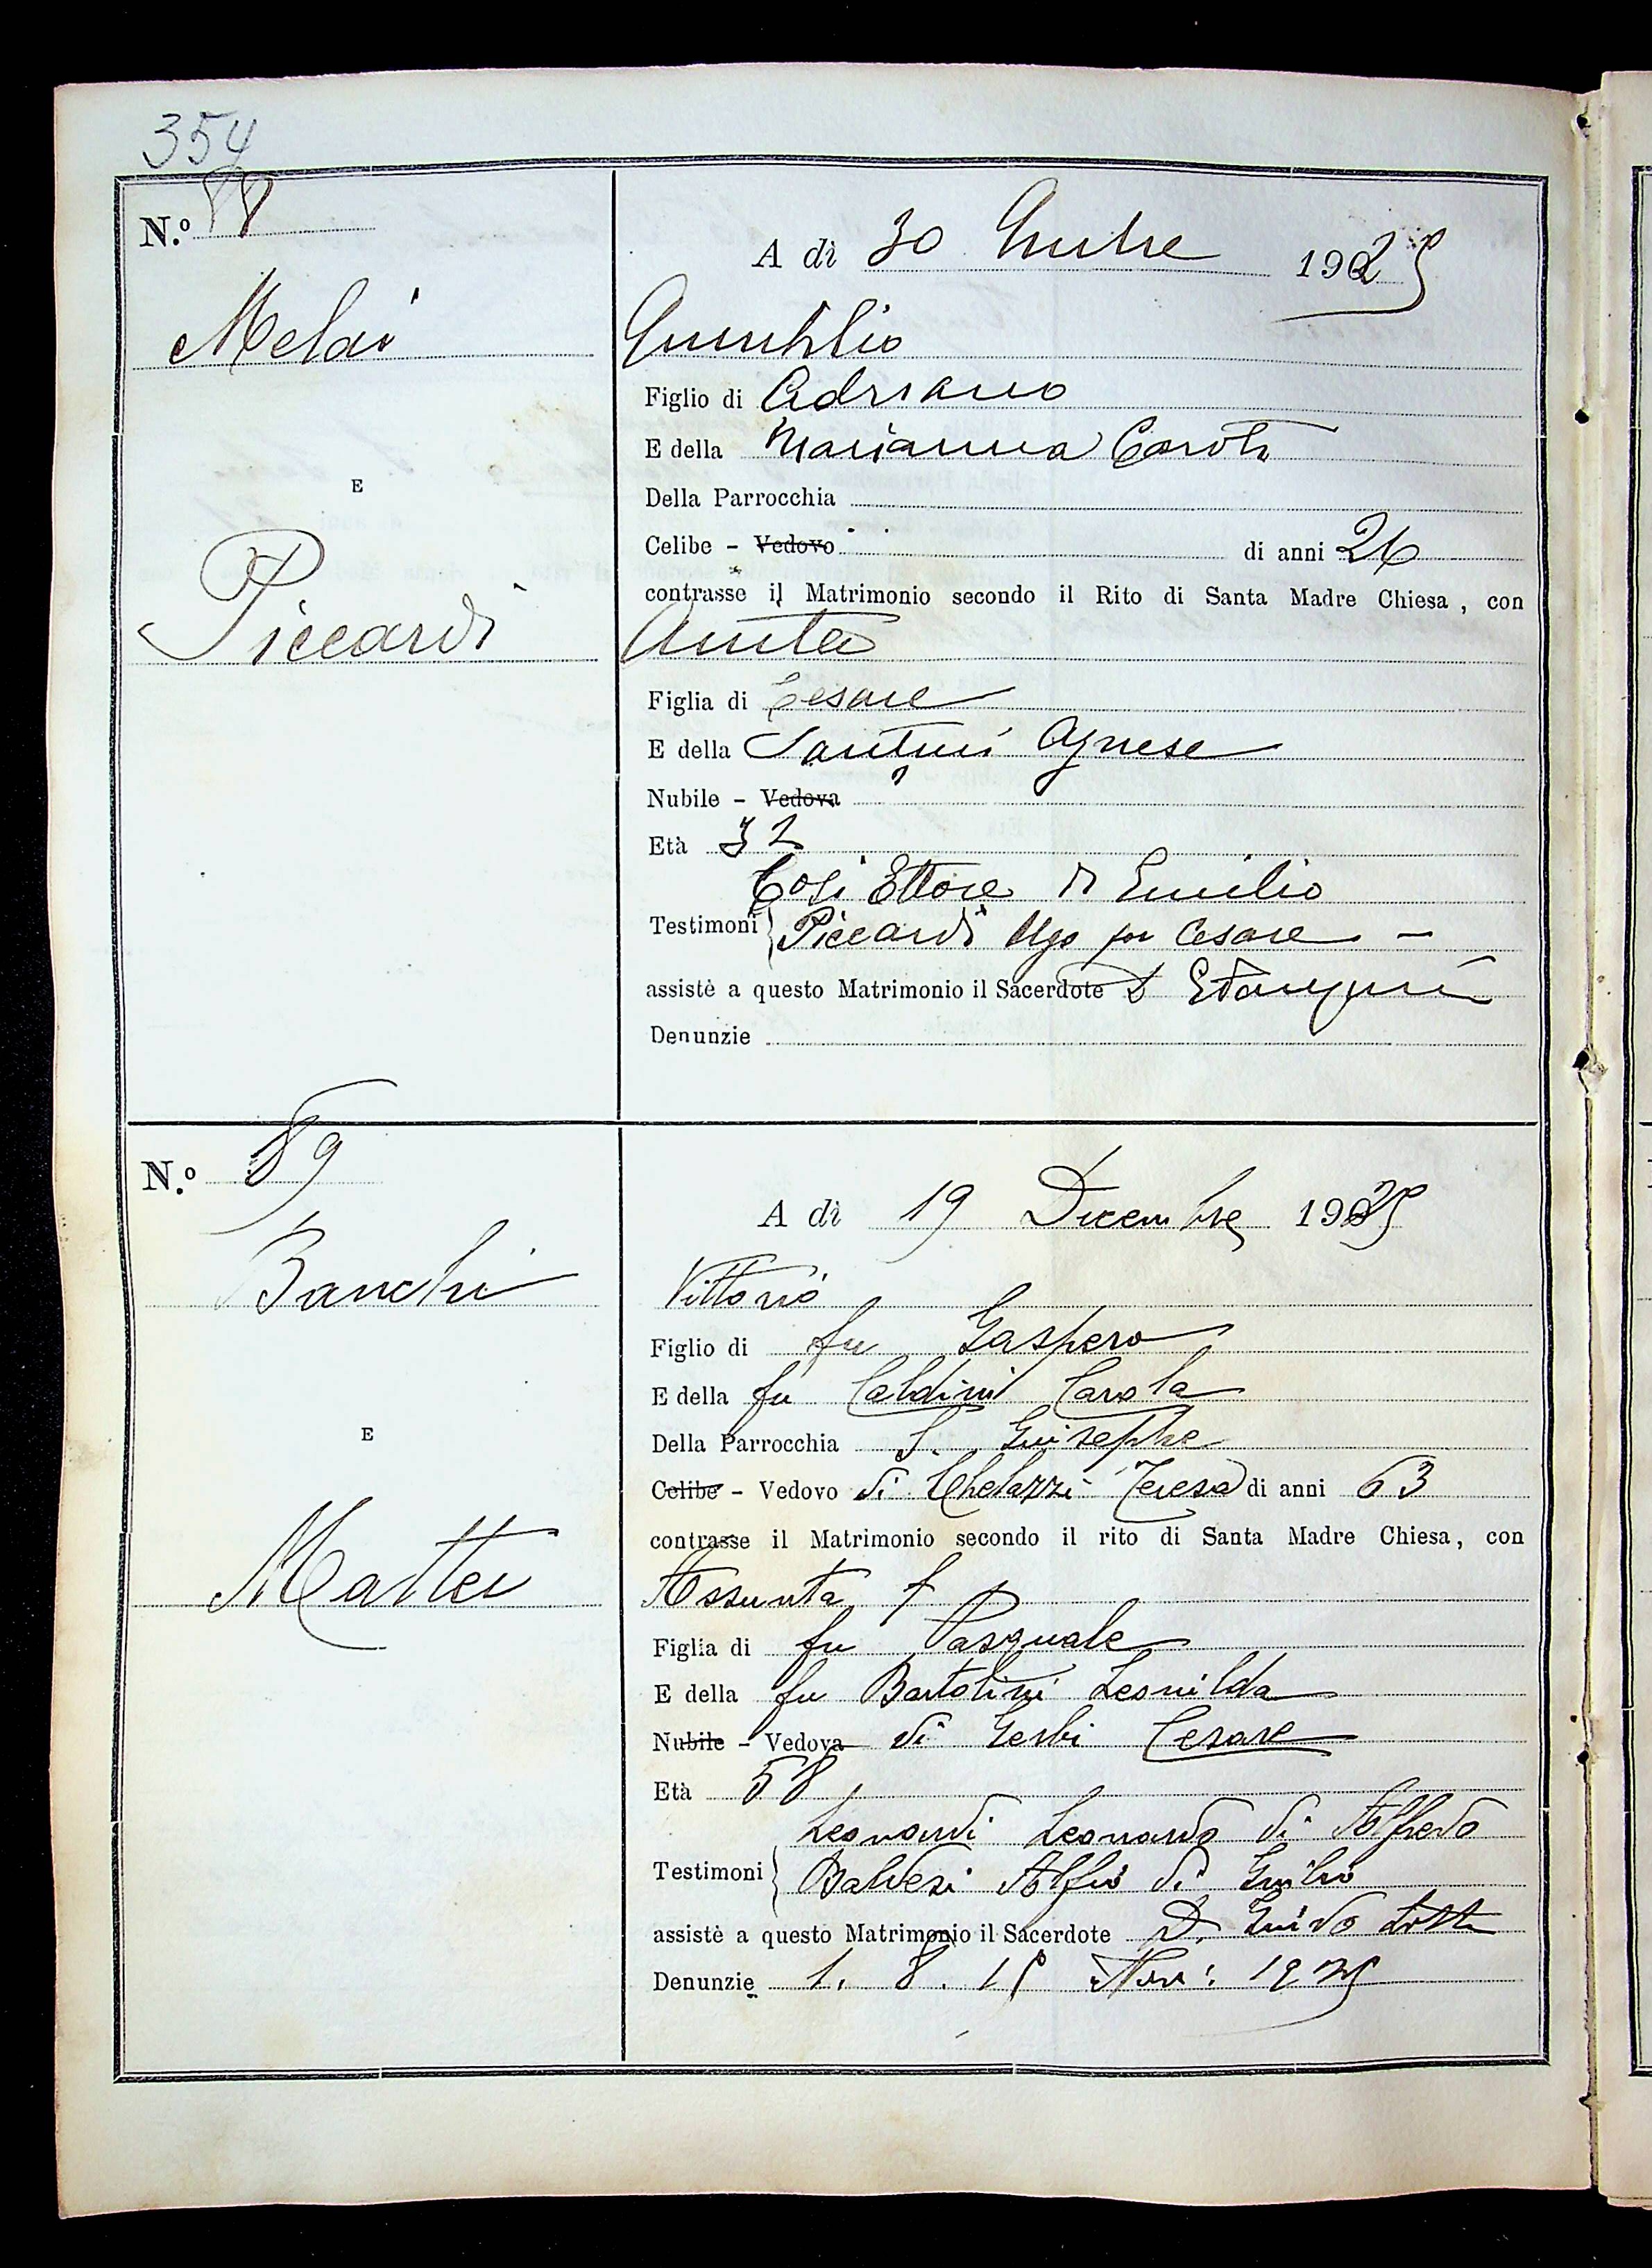 354
N.º 88
A dì 30 1925
Melai
Figlio di Adriano
E della Marianna Caroti
Della Parrocchia
E
Celibe - Vedovo di anni 26
contrasse il Matrimonio secondo il Rito di Santa Madre Chiesa, con
Piccardi
Figlia di Cesare
E della Santini Agnese
Nubile - Vedova
Età 32
Cosi Ettore di Emilio
Testimoni Piccardi Ugo fu Cesare -
assistè a questo Matrimonio il Sacerdote D
Denunzie
N.º 89
A dì 19 Decembre 1925
Banchi
Vittorio
Figlio di fu Gaspero
E della fu Caldini Carola
E
Della Parrocchia S. Giuseppe
Celibe - Vedovo di Chelazzi Teresa di anni 63
contrasse il Matrimonio secondo il rito di Santa Madre Chiesa, con
Mattei
Assunta
Figlia di fu Pasquale
E della fu Bartolini Leonilda
Nubile - Vedova di Gerbi Cesare
Età 58
Leonardi Leonardo di Alfredo
Testimoni Baldesi Alfio di Giulio
assistè a questo Matrimonio il Sacerdote D. Guido
Denunzie 1. 8. 15 Nov: 1925